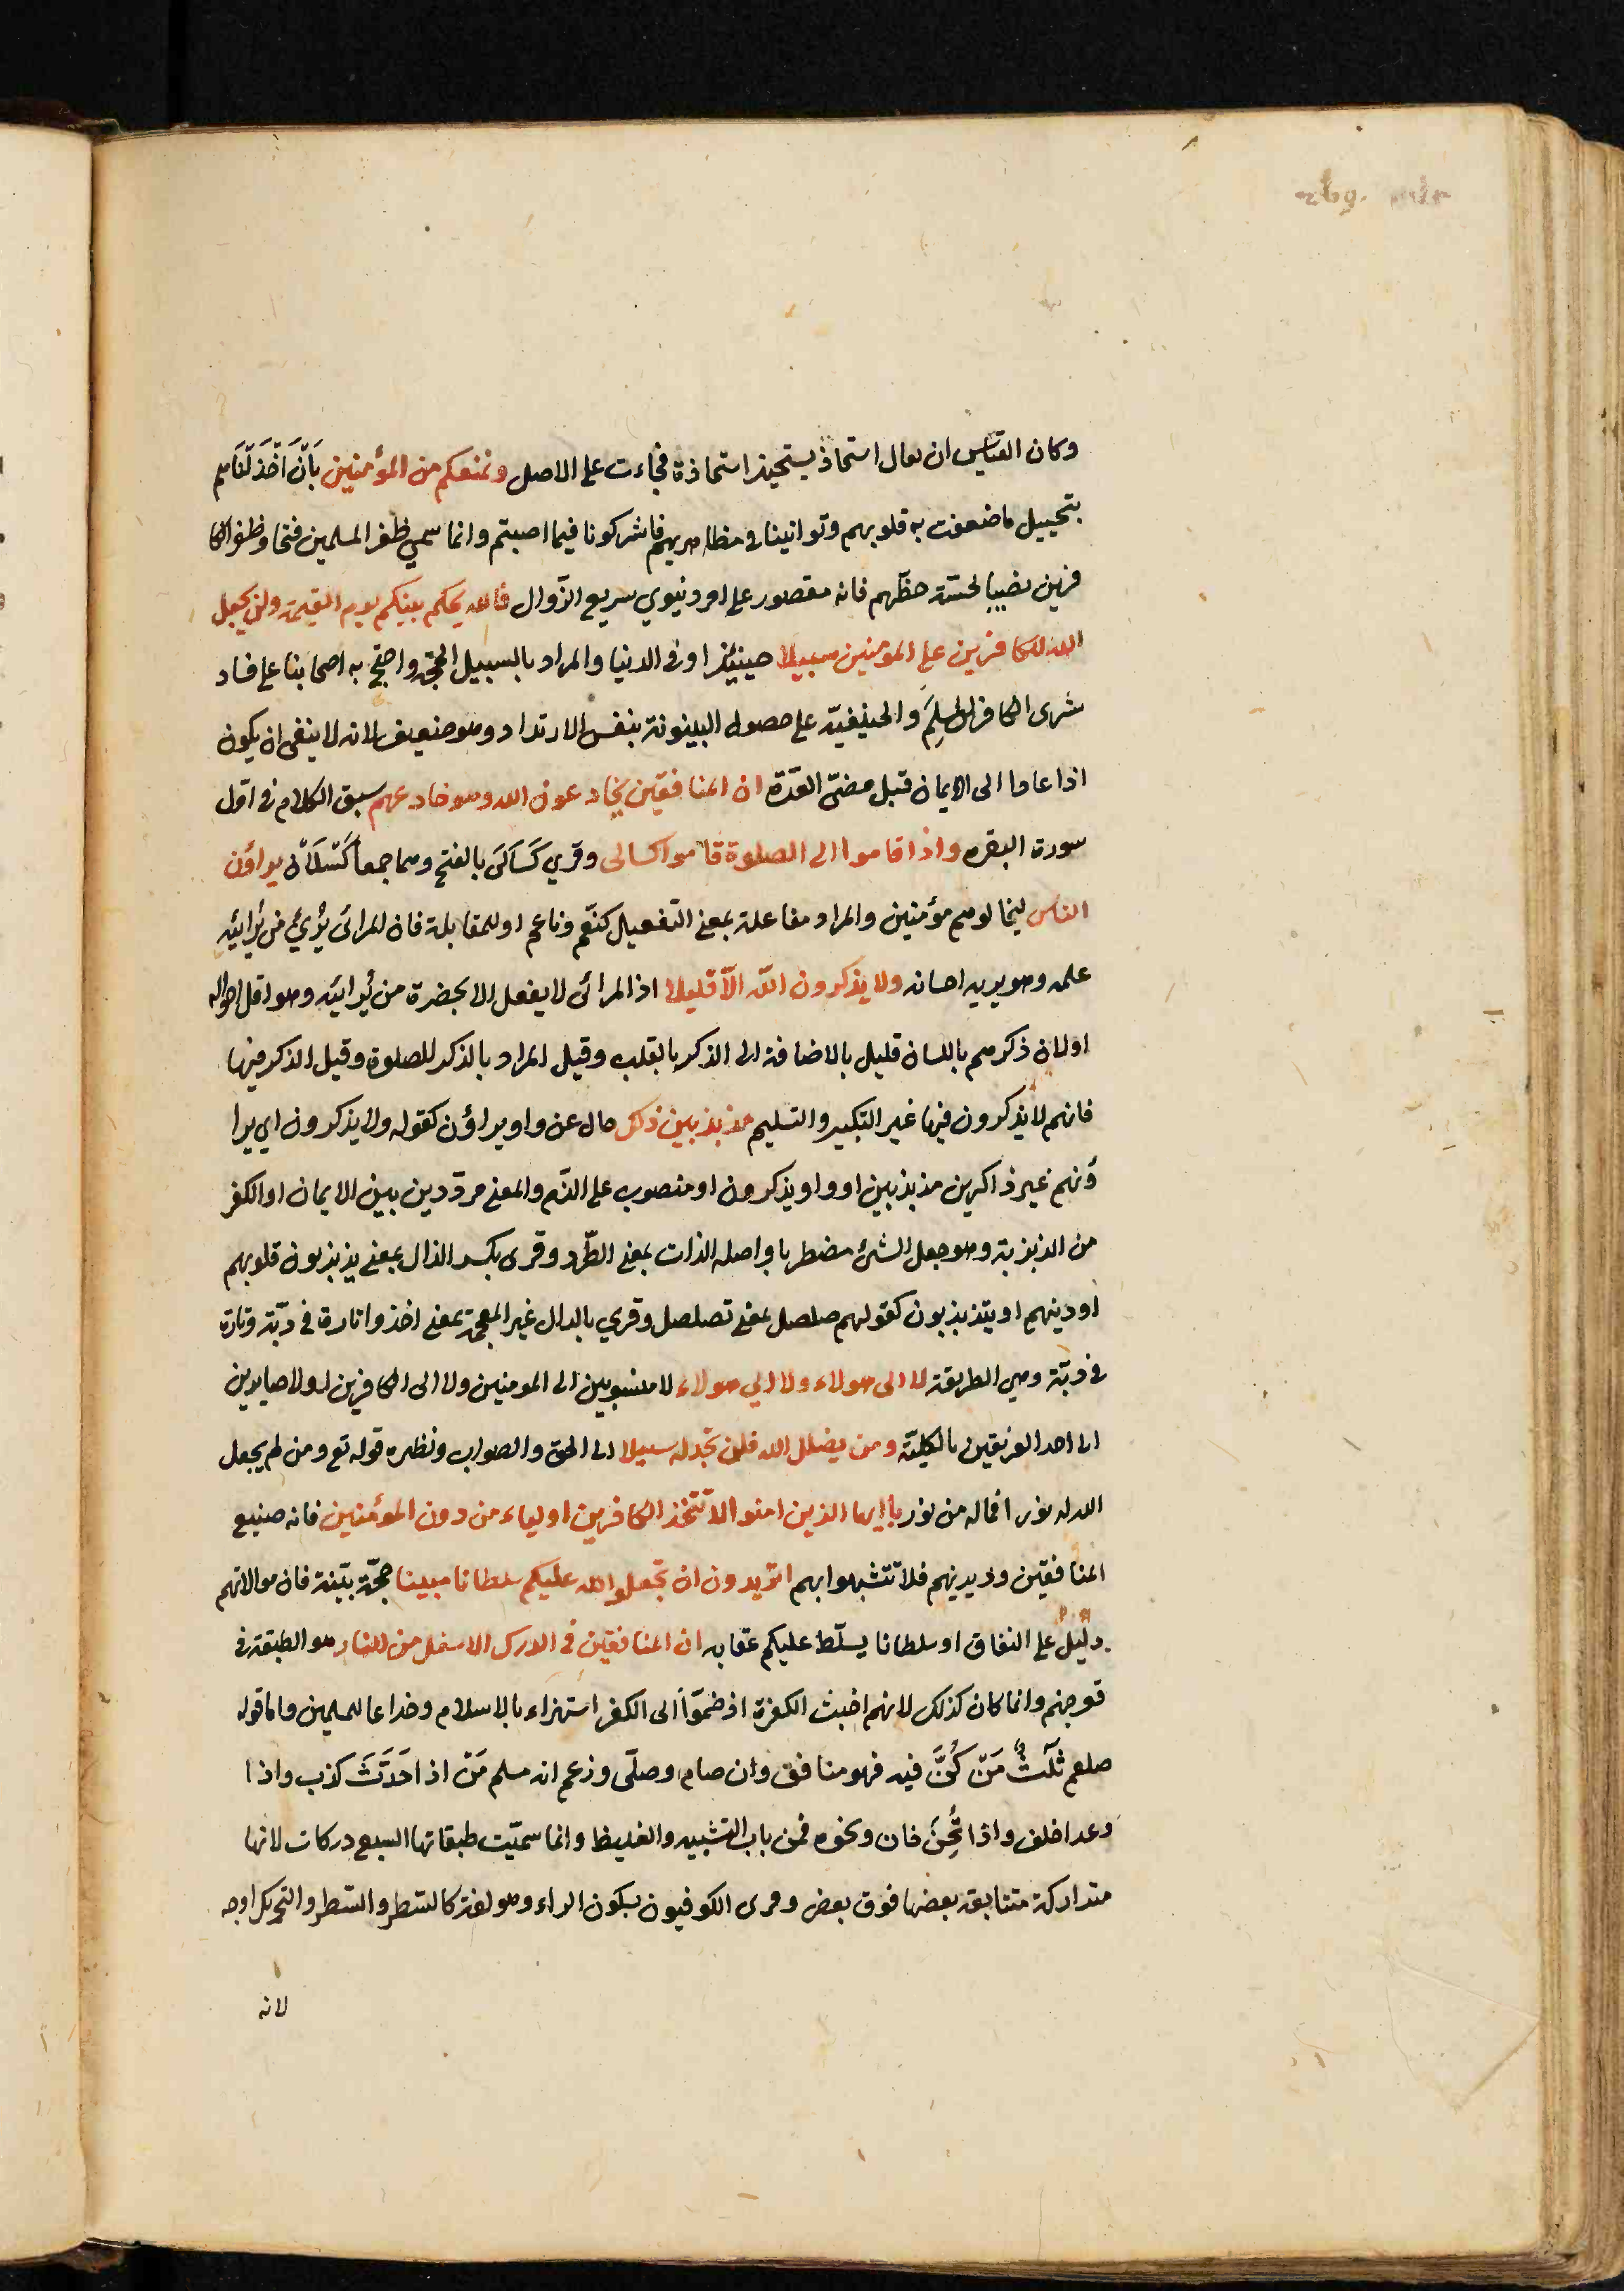 وكان القياس ان يقال استحاذ يستحيذ استحاذة فجاءت على الاصل ونمنعكم من المؤمنين بَاَنْ اَخْذَلْنَاهم
بتخييل ما ضعفت به قلوبهم وتوانينا في مظاهرتهم فاشركونا فيما اصبتم وانما سمي ظفر المسلمين فتحا وظفر الكا
فرين نصيبا لخسّة حظّهم فانه مقصور على امر دنيوي سريع الزّوال فالله يحكم بينكم يوم القيمة ولن يجعل
الله للكافرين على المؤمنين سبيلا حينئذ او في الدنيا والمراد بالسبيل الحجّة واحتج به اصحابنا على فساد
شرى الكافر المسلِمَ والحنيفيّة على حصول البينونة بنفس الارتداد وهو ضعيف لانه لا ينفى ان يكون
اذا عاد الى الايمان قبل مضىّ العدّة ان المنافقين يخادعون الله وهو خادعهم سبق الكلام في اوّل
سورة البقره واذا قاموا الى الصلوة قاموا كسالى وقرى كَسَالَى بالفتح وهما جمعا كَسْلَانَ يراؤن
الناس ليخالوهم مؤمنين والمراد مفاعلة بمعنى التفعيل كنعّم وناعم او للمقابلة فان المرائى يُرِيُ من يُرائيه
عمله وهو يريه احسانه ولا يذكرون اللّه الاّ قليلا اذ المرائى لا يفعل الا بحضرة من يُرائيه وهو اقل احواله
او لان ذكرهم باللسان قليل بالاضافة الى الذكر بالقلب وقيل المراد بالذكر الصلوة وقيل الذكر فيها
فانهم لا يذكرون فيها غير التكبير والتسليم مذبذبين ذلك حال عن واو يراؤن كقوله ولا يذكرون اي يرا
ؤنهم غير ذاكرين مذبذبين او واو يذكرون او منصوب على الذّم والمعنى مردّدين بين الايمان او الكفر
من الذبذبة وهو جعل الشئ مضطربا واصله الذات بمعنى الطّرد وقرى بكسر الذال بمعنى يذبذبون قلوبهم
او دينهم او يتذبذبون كقولهم صلصل بمعنى تصلصل وقري بالدال غير المعجمة بمعنى اخذوا تارة في دبّة وتارة
في دبّة وهي الطريقة لا الى هولاء ولا الي هولاء لا منسوبين الى المومنين ولا الى الكافرين او لا صايرين
الى احد الفريقين بالكليّة ومن يضلل الله فلن تجد له سبيلا الى الحق والصواب ونظيره قوله تع ومن لم يجعل
الله له نورا فماله من نور يا ايها الذين امنوا لا تتخذ الكافرين اولياء من دون المؤمنين فانه صنيع
المنافقين وديدنهم فلا تتشبهوا بهم اتريدون ان تجعلوا لله عليكم سلطانا مبينا حجّة بيّنة فان موالاتهم
دليل على النفاق او سلطانا يسلّط عليكم عقابه ان المنافقين في الدرك الاسفل من النار هو الطبقة في
قعر جهنم وانما كان كذلك لانهم اخبث الكفرة اذ ضمّوا الى الكفر استهزاء بالاسلام وخداعا للمسلمين واما قوله
صلعم ثَلٰثٌ مَنْ كُنَّ فيه فهو منافق وان صام وصلّى وزعم انه مسلم مَنْ اذا حَدَّثَ كذب واذا
وعد اخلف واذا تُمِنَ خان ونحوه فمن باب التشبيه والتغليظ وانما سمّيت طبقاتها السبع دركات لانها
متداركة متتابعة بعضها فوق بعض وقرى الكوفيون بسكون الراء وهو لغة كالسّطر والسّطر والتحريك اوجه
لانه